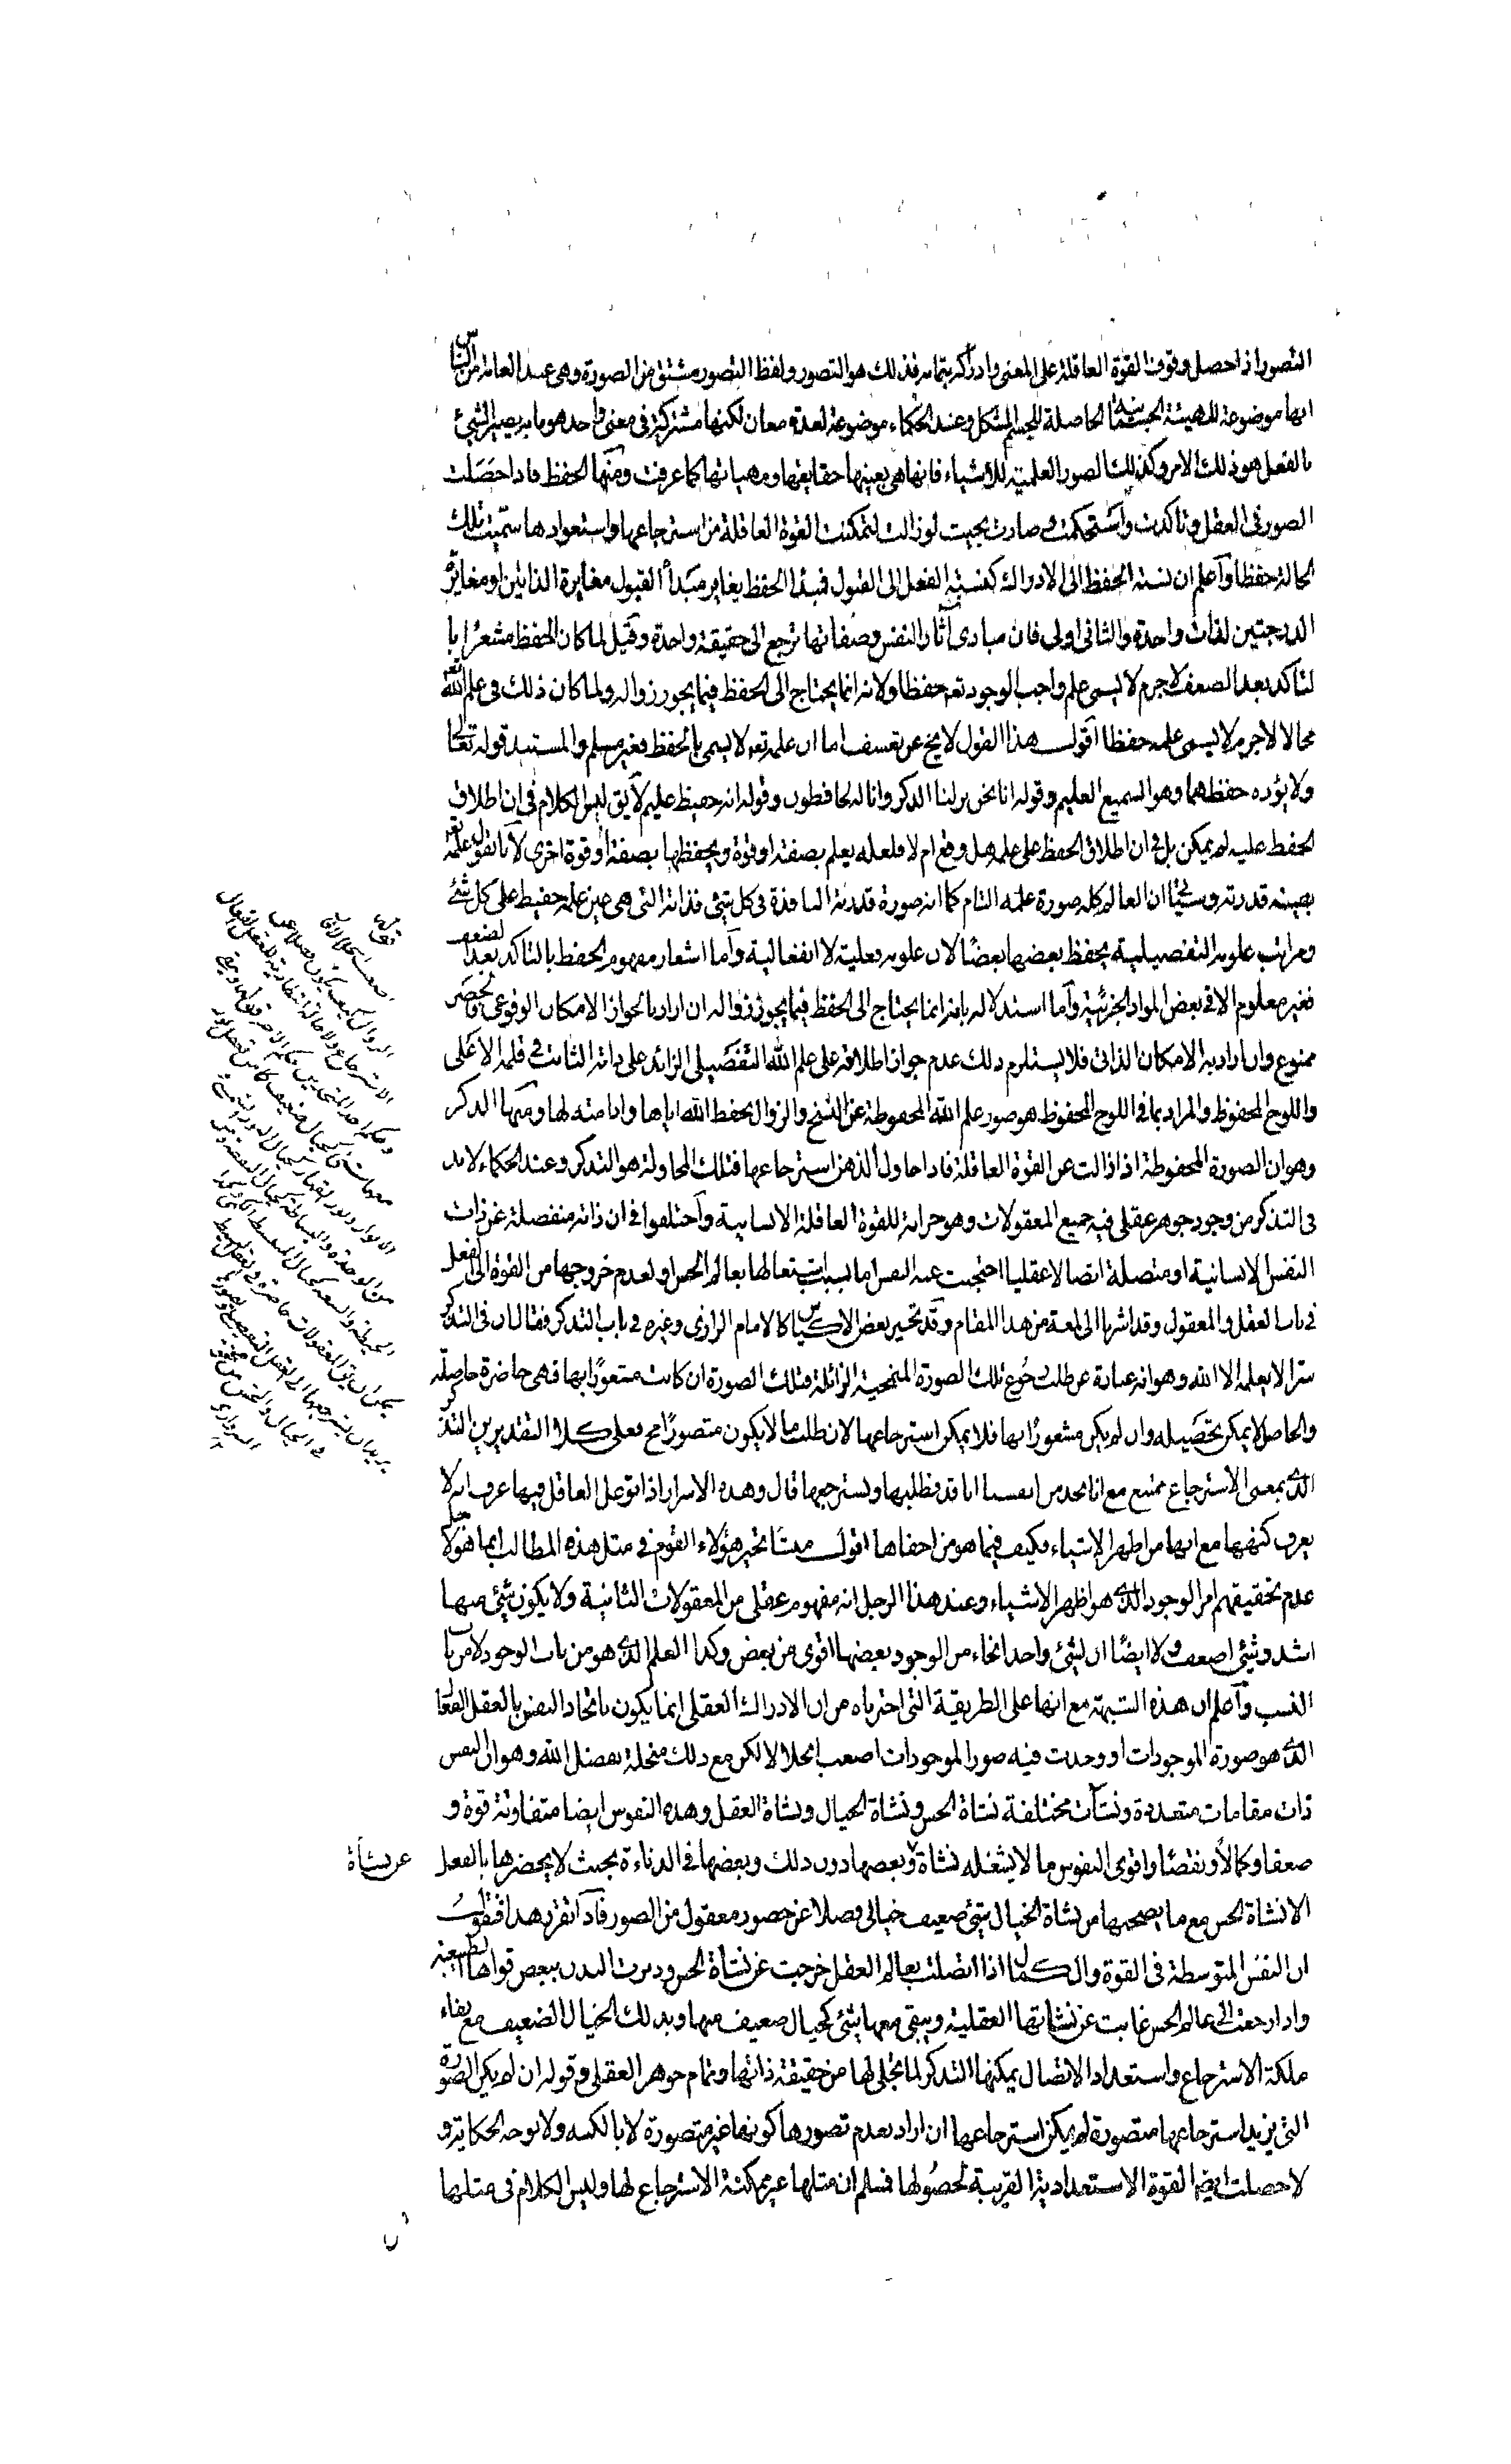 التصور اذا حصل وقوف القوة العاقلة على المعنى وادراكه بتمامه فذلك هو التصور ولفظ التصور مشتق من الصورة وهى عند العامة من الناس
انها موضوعة للهيئة الجسمانية الحاصلة للجسم المشكل وعند الحكماء موضوعة لعدة معان لكنها مشتركة فى معنى واحد هو ما به يصير الشئ
بالفعل هو ذلك الامر وكذلك الصور العلمية للاشياء فانها هى بعينها حقايقها ومهياتها كما عرفت ومنها الحفظ فاذا حصلت
الصور فى العقل وتاكدت واستحكمت وصارت بحيث لو زالت لتمكنت القوة العاقلة من استرجاعها واستعوادها سميت تلك
الحالة حفظا واعلم ان نسبة الحفظ الى الادراك كنسبة الفعل الى القبول فمبدأ الحفظ يغاير مبدأ القبول مغايرة الذاتين او مغايرة
الدرجتين لذات واحدة والثانى اولى فان مبادى آثار النفس وصفاتها ترجع الى حقيقة واحدة وقيل لما كان الحفظ مشعرا با
لتاكد بعد الضعف لاجرم لا يسمى علم واجب الوجود تعه حفظا ولانه انما يحتاج الى الحفظ فيما يجوز زواله ولما كان ذلك فى علم الله تعه
محالا لاجرم لا يسمى علمه حفظا اقول هذا القول لا يخ عن تعسف اما ان علمه تعه لا يسمى بالحفظ فغير مسلم والمستند قوله تعالى
ولا يؤده حفظهما وهو السميع العليم وقوله انا نحن نزلنا الذكر وانا له لحافظون وقوله انه حفيظ عليم لا يق ليس الكلام فى ان اطلاق
الحفظ عليه لم يمكن بل فى ان اطلاق الحفظ على علمه هل وقع ام لا فلعله يعلم بصفة او قوة ويحفظها بصفة او قوة اخرى لانا نقول علمه تعه
بعينه قدرته وسيجئ ان العالم كله صورة علمه التام كما انه صورة قدرته النافذة فى كل شئ فذاته التى هى عين علمه حفيظ على كل شئ
ومراتب علومه التفصيلية يحفظ بعضها بعضا لان علومه فعلية لا انفعالية واما اشعار مفهوم الحفظ بالتاكد بعد الضعف
فغير معلوم الا فى بعض المواد الجزئية واما استدلاله بانه انما يحتاج الى الحفظ فيما يجوز زواله ان اراد بالجواز الامكان الوقوعى فالحصر
ممنوع وان اراد به الامكان الذاتى فلا يستلزم ذلك عدم جواز اطلاقه على علم الله التفصيلى الزائد على ذاته الثابت فى قلمه الاعلى
واللوح المحفوظ والمراد بما فى اللوح المحفوظ هو صور علم الله المحفوظة عن النسخ والزوال بحفظ الله اياها وادامته لها ومنها الذكر
وهو ان الصورة المحفوظة اذا زالت عن القوة العاقلة فاذا حاول الذهن استرجاعها فتلك المحاولة هو التذكر وعند الحكماء لا بد
فى التذكر من وجود جوهر عقلى فيه جميع المعقولات وهو خزانة للقوة العاقلة الانسانية واختلفوا فى ان ذاته منفصلة عن ذات
النفس الانسانية او متصلة اتصالا عقليا احتجبت عنه النفس اما بسبب اشتغالها بعالم الحس او لعدم خروجها من القوة الى الفعل
فى باب العقل والمعقول وقد اشرنا الى لمعة من هذا المقام وقد تحير بعض الاكياس كالامام الرازى وغيره فى باب التذكر فقال ان فى التذكر
سرا لا يعلمه الا الله وهو انه عبارة عن طلب رجوع تلك الصورة المنمحية الزائلة فتلك الصورة ان كانت مشعورا بها فهى حاضرة حاصلة
والحاصل لا يمكن تحصيله وان لم يكن مشعورا بها فلا يمكن استرجاعها لان طلب ما لا يكون متصورا مح فعلى كلا التقديرين التذكر
الذى بمعنى الاسترجاع ممتنع مع انا نجد من انفسنا انا قد نطلبها ونسترجعها قال وهذه الاسرار اذا توغل العاقل فيها عرف انه لا
يعرف كنهها مع انها من اظهر الاشياء فكيف فيما هو من اخفاها اقول منشأ تحير هؤلاء القوم فى مثل هذه المطالب انما هو لاجل
عدم تحقيقهم امر الوجود الذى هو اظهر الاشياء وعند هذا الرجل انه مفهوم عقلى من المعقولات الثانية ولا يكون شئ منها
اشد وشئ اضعف ولا ايضا ان لشئ واحد انحاء من الوجود بعضها اقوى من بعض وكذا العلم الذى هو من باب الوجود لا من باب
النسب واعلم ان هذه الشبهة مع انها على الطريقة التى اخترناه من ان الادراك العقلى انما يكون باتحاد النفس بالعقل الفعال
الذى هو صورة الموجودات او وجدت فيه صور الموجودات اصعب انحلالا لكن مع ذلك منحلة بفضل الله وهو ان النفس
ذات مقامات متعددة ونشآت مختلفة نشاة الحس ونشاة الخيال ونشاة العقل وهذه النفوس ايضا متفاوتة قوة و
ضعفا وكمالا ونقصا واقوى النفوس ما لا يشغله نشاة عن نشاة وبعضها دون ذلك وبعضها فى الدناءة بحيث لا يحضرها بالفعل
الا نشاة الحس مع ما يصحبها من نشاة الخيال شئ ضعيف خيالى فضلا عن حضور معقول من الصور فاذا تقرر هذا فنقول
ان النفس المتوسطة فى القوة والكمال اذا اتصلت بعالم العقل خرجت عن نشاة الحس ودبرت البدن ببعض قواها الطبيعية
واذا رجعت الى عالم الحس غابت عن نشاتها العقلية ويبقى معها شئ كخيال ضعيف منها وبذلك الخيال الضعيف مع بقاء
ملكة الاسترجاع واستعداد الاتصال يمكنها التذكر لما تجلى لها من حقيقة ذاتها وتمام جوهر العقلى وقوله ان لم يكن الصورة
التى يزيد استرجاعها متصورة لم يمكن استرجاعها ان اراد بعدم تصورها كونها غير متصورة لا بالكنه ولا بوجه الحكاية و
لا حصلت ايضا القوة الاستعدادية القريبة لحصولها فسلم ان مثلها غير ممكنة الاسترجاع لها وليس الكلام فى مثلها